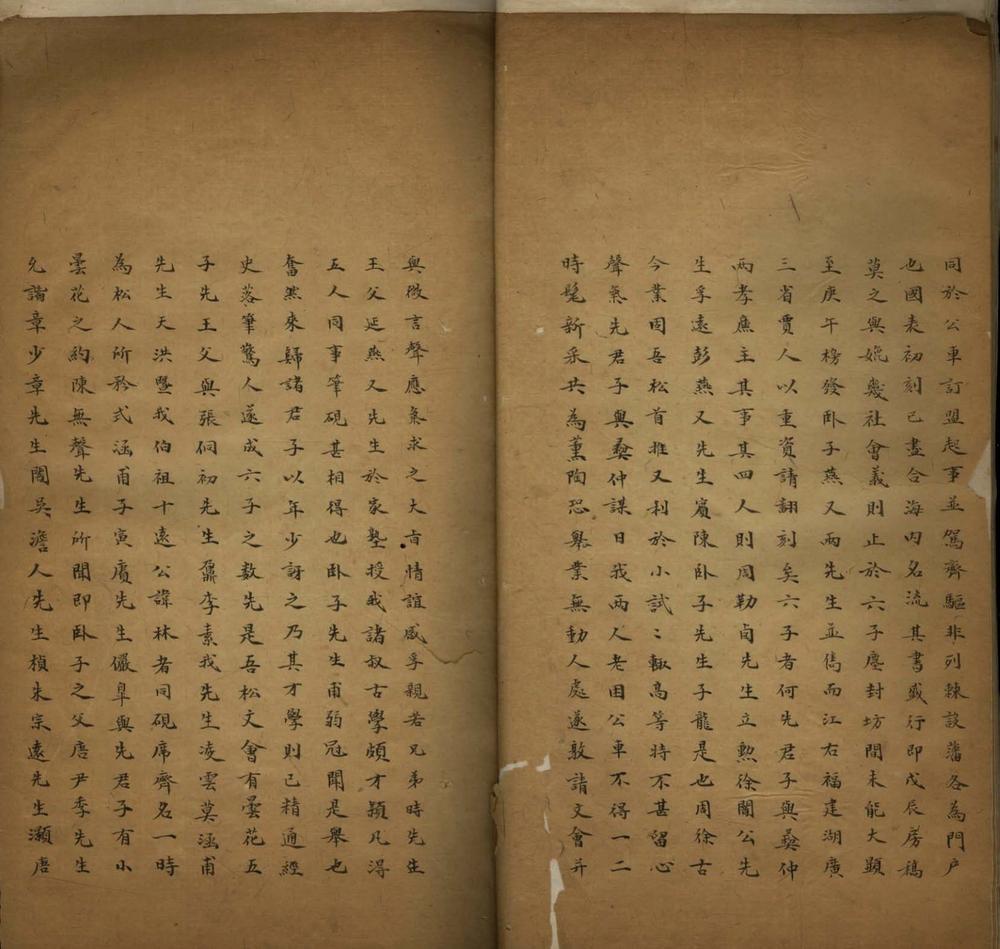 同於公車訂盟起事並駕齊驅非列棘設藩各為門户
也國表初刻已盡合海内名流其書盛行即戊辰房稿
莫之與媲幾社會義則止於六子塵封坊間未能大顯
至庚午榜發卧子燕又兩先生並雋而江右福建湖廣
三省賈人以重資請翻刻矣六子者何先君子與彝仲
兩孝廉主其事其四人則周勒卣先生立勲徐闇公先
生孚遠彭燕又先生賓陳卧子先生子龍是也周徐古
今業固吾松首推又利於小試〻輒高等特不甚留心
聲氣先君子與彝仲謀曰我兩人老困公車不得一二
時髦新采共為薰陶恐舉業無動人處遂敦請文會并
與微言聲應氣求之大肯情誼感孚親若兄弟時先生
王父延燕又先生於家塾授我諸叔古學頗才穎凡得
五人同事筆硯甚相得也卧子先生甫弱冠聞是舉也
奮然來歸諸君子以年少訝之乃其才學則已精通經
史落筆驚人遂成六子之数先是吾松文會有曇花五
子先王父與張侗初先生鼐李素我先生凌雲莫涵甫
先生天洪暨我伯祖十遠公諱林者同硯席齊名一時
為松人所矜式涵甫子寅賡先生儼臯與先君子有小
曇花之約陳無聲先生所聞即卧子之父唐尹季先生
允諧章少章先生闇吳澹人先生楨朱宗遠先生灝唐